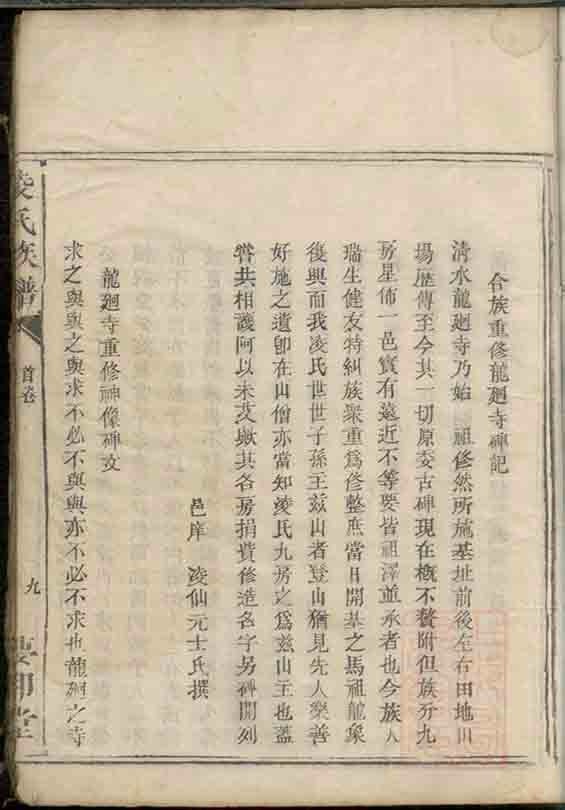 合族重修龍廻寺碑記
清水龍廻寺乃始 祖修然所施基址前後左右田地山
場歷傳至今其一切原委古碑現在概不贅附但族分九
房星佈一邑實有遠近不等要皆祖澤並承者也今族人
瑞生健友特糾族衆重爲修整庶當日開基之馬祖龍象
復興而我凌氏世世子孫主茲山者登山猶見先人樂善
好施之遺卽在山僧亦當知凌氏九房之爲茲山主也蓋
嘗共相護阿以未艾歟其各房捐貲修造名字另碑開列
邑庠 凌仙元士氏撰
龍廻寺重修神像碑文
求之與與之與求不必不與與亦不必不求也龍廻之寺
凌氏族譜
首卷
九